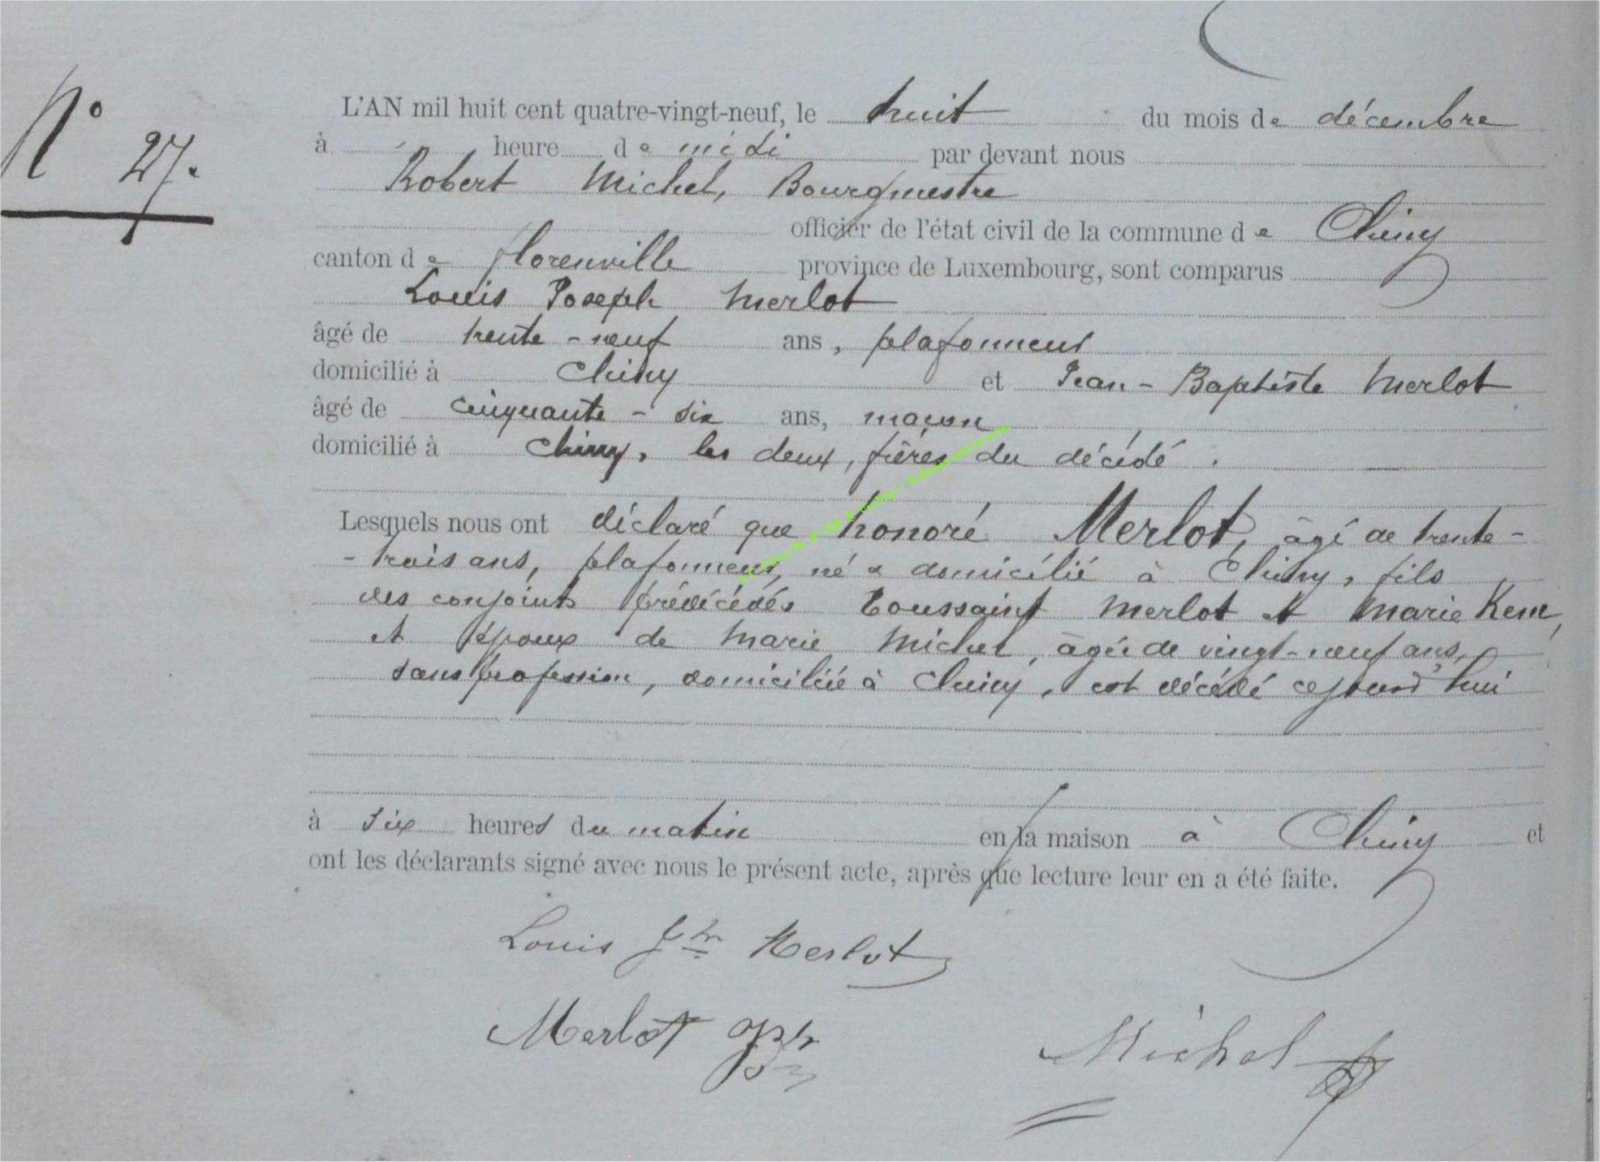 N° 27.
L'AN mil huit cent quatre-vingt-neuf, le huit du mois de décembre
à heure de midi par devant nous
Robert Michel, Bourgmestre
officier de l'état civil de la commune de Chiny
canton de florenville province de Luxembourg, sont comparus
Louis Joseph Merlot
âgé de trente-neuf ans, plafonneur
domicilié à Chiny et Jean-Baptiste Merlot
âgé de cinquante-six ans, maçon
domicilié à Chiny, les deux, frères du décédé.
Lesquels nous ont déclaré que honoré Merlot, âgé de trente-
-trois ans, plafonneur, né & domicilié à Chiny, fils
des conjoints prédécédés Toussaint Merlot et Marie
et époux de Marie Michel, âgée de vingt-neuf ans,
sans profession, domiciliée à Chiny, est décédé cejourd'hui
à six heures du matin en la maison à Chiny et
ont les déclarants signé avec nous le présent acte, après que lecture leur en a été faite.
Louis Jph Merlot
Merlot JBte
Michel